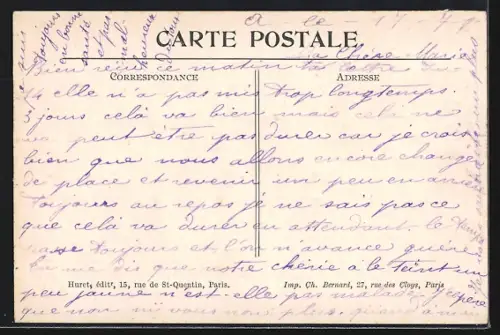 A ce 17
CARTE POSTALE
Ma Chère Marie
Bien reçu ce matin ta lettre du
CORRESPONDANCE
ADRESSE
elle n'a pas mis trop longtemps.
3 jours celà va bien mais celà ne
va peut être pas durer car je crois
bien que nous allons encore changer
de place et revenir un peu en arrière
Toujours au repos je ne sais pas ce
que celà va durer en attendant. le temps
passe Toujours et l'on n'avance guère
tu me dis que notre chérie à le teint un
Huret, éditr, 15, rue de St-Quentin, Paris.
Imp. Ch. Bernard, 27, rue des Cloys, Paris
peu jaune n'est-elle pas malade. J'espère
que non
nous
quand à moi
je suis
Toujours
en bonne
santé
et pas
mal
heureux